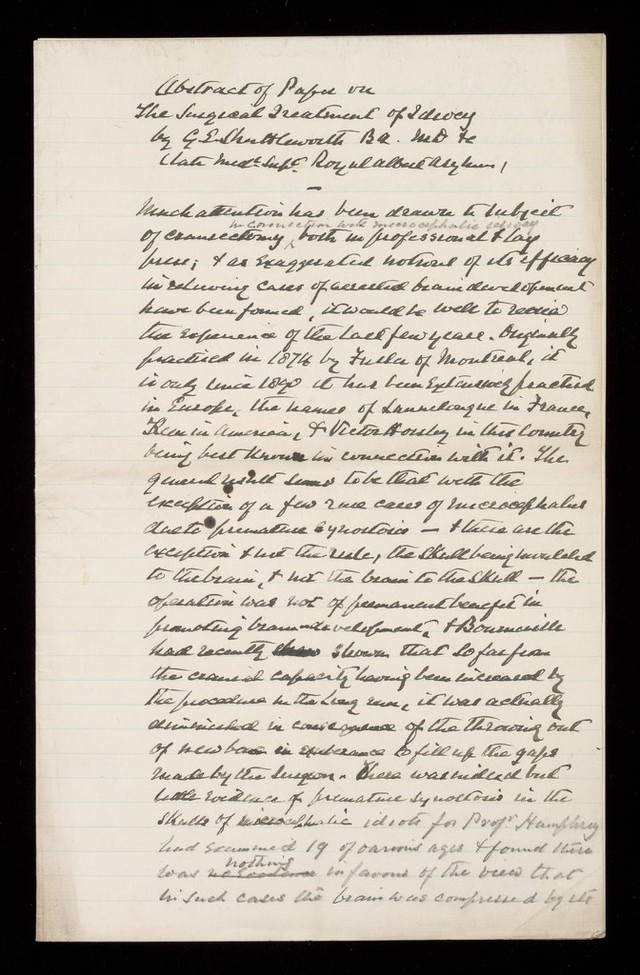 Abstract of Paper on
The Surgical Treatment of Idiocy
by G E Shuttleworth B.A. M.D. &c
(late Med. Supt. Royal Albert Asylum)
Much attention has been drawn to subject
in connection with microcephalic idiocy
of craniectomy, both in professional & lay
press; & as exaggerated notions of its efficiency
in relieving cases of arrested brain development
have been formed, it would be well to
the experience of the last few years. Originally
practised in 1878 by Fuller of Montreal, it
is only since 1890 it has been extensively practised
in Europe, the names of Lannelongue in France,
Keen in America, & Victor Horsley in this Country
being best known in connection with it. The
general result seems to be that with the
exception of a few rare cases of microcephalus
due to premature synostosis — & these are the
exception & not the rule, the skull being moulded
to the brain, & not the brain to the skull — the
operation was not of permanent benefit in
promoting brain-development, & Bourneville
had recently shown that so far from
the cranial capacity having been increased by
the procedure in the long run, it was actually
diminished in consequence of the throwing out
of new bone in exuberance to fill up the gaps
made by the surgeon. There was indeed but
little evidence of premature synostosis in the
skulls of microcephalic idiots for Profr. Humphry
had examined 19 of various ages & found there
nothing
was no evidence in favour of the view that
in such cases the brain was compressed by its